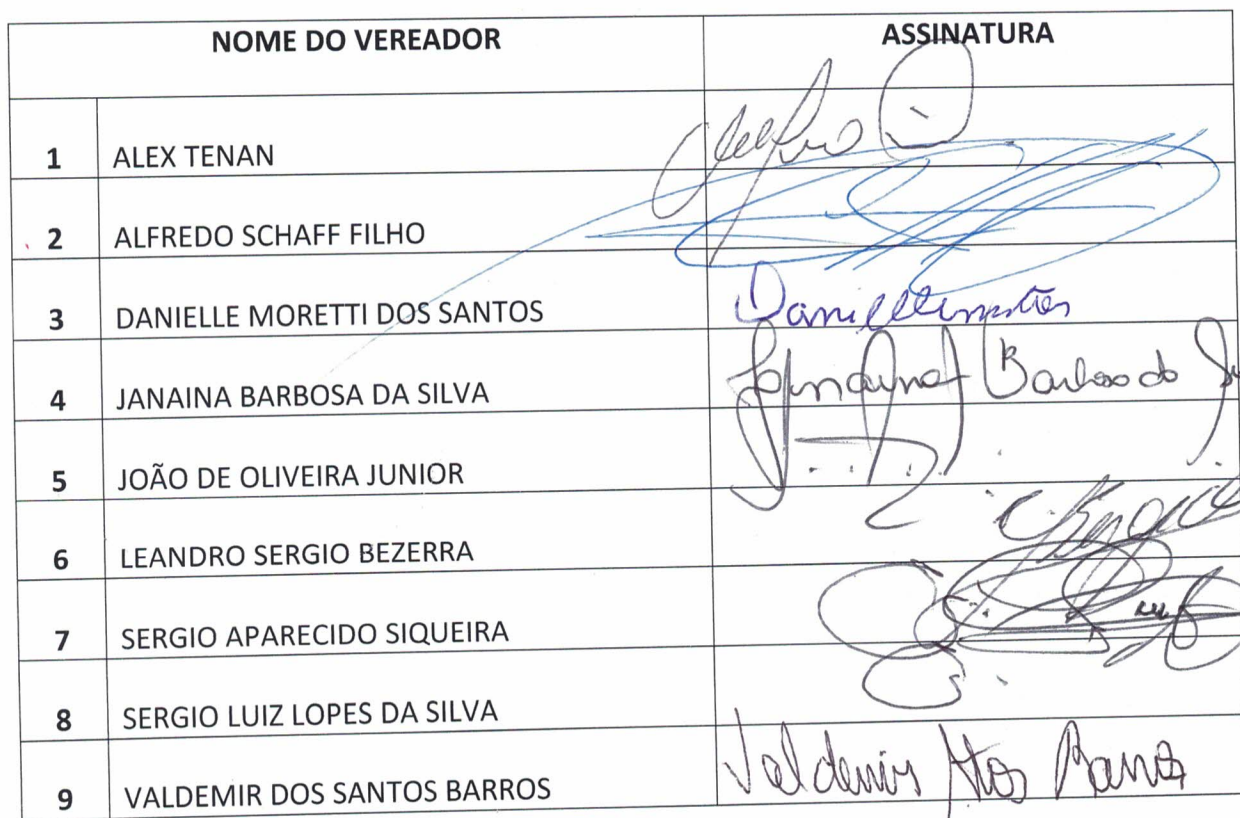 NOME DO VEREADOR ASSINATURA
1 ALEX TENAN
2 ALFREDO SCHAFF FILHO
3 DANIELLE MORETTI DOS SANTOS
4 JANAINA BARBOSA DA SILVA Janaina Barbosa da
5 JOÃO DE OLIVEIRA JUNIOR
6 LEANDRO SERGIO BEZERRA
7 SERGIO APARECIDO SIQUEIRA
8 SERGIO LUIZ LOPES DA SILVA
9 VALDEMIR DOS SANTOS BARROS Valdemir Stos Barros